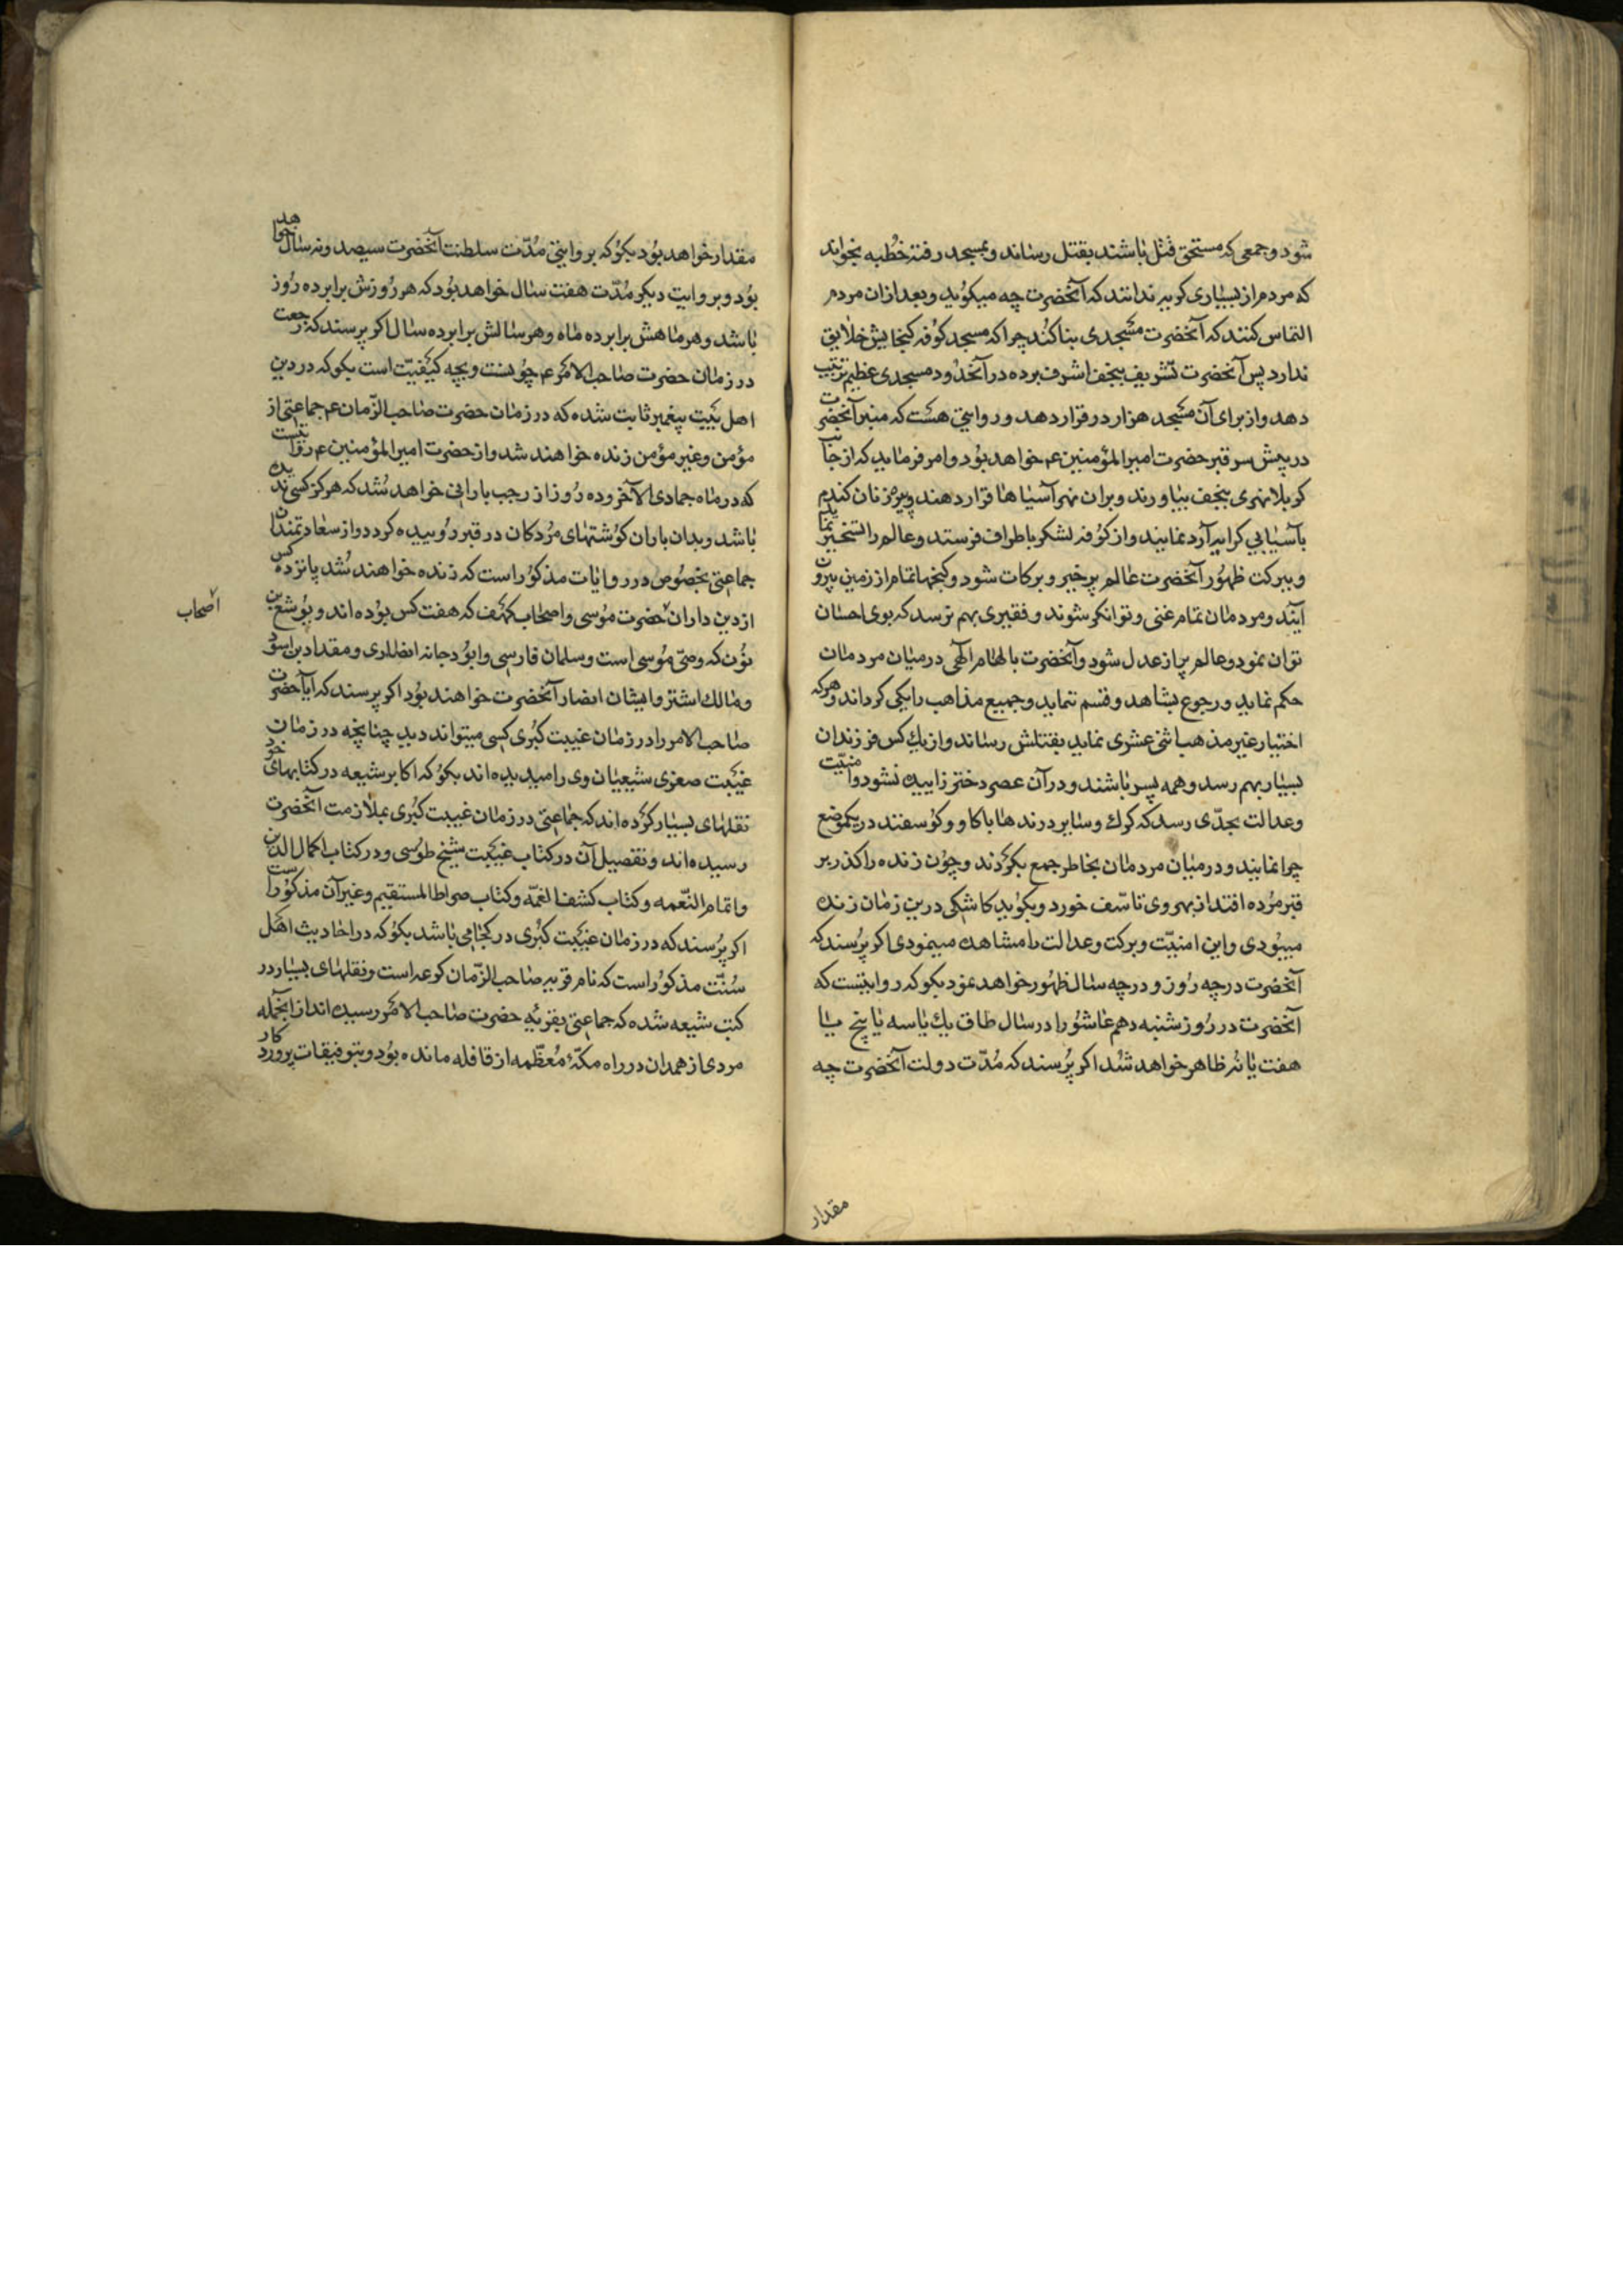 شود و جمعی که مستحق قتل باشند بقتل رساند و بمسجد رفته خطبه بخواند
که مردم از بسیاری کریه ندانند که آنحضرت چه میکوید و بعد ازان مردم
التماس کنند که آنحضرت مسجدی بنا کند چرا که مسجد کوفه کنجایش خلایق
ندارد پس آنحضرت تشریف بنجف اشرف برده در آنحدود مسجدی عظیم ترتیب
دهد و از برای آن مسجد هزار در قرار دهد و روایتی هست که منبر آنحضرت
در پیش سر قبر حضرت امیرالمؤمنین ع خواهد بود و امر فرماید که از جانب
کربلا نهری بنجف بیاورند و بران نهر آسیاها قرار دهند و پیره زنان کندم
بآسیابی کرایه آرد نمایند و از کوفه لشکر باطراف فرستد و عالم را تسخیر نماید
و ببرکت ظهور آنحضرت عالم پر خیر و برکات شود و کنجها تمام از زمین بیرون
آیند و مردمان تمام غنی و توانکر شوند و فقیری بهم نرسد که بوی احسان
توان نمود و عالم پر از عدل شود و آنحضرت بالهام الهی در میان مردمان
حکم نماید و رجوع بشاهد و قسم ننماید و جمیع مذاهب را یکی کرداند و هرکه
اختیار غیر مذهب اثنی عشری نماید بقتلش رساند و از یک کس فرزندان
بسیار بهم رسد و همه پسر باشند و در آن عصر دختر زاییده نشود و امنیت
و عدالت بحدّی رسد که کرک و سایر درندها با کاو و کوسفند در یکموضع
چرا نمایند و در میان مردمان بخاطر جمع بکردند و چون زنده را کذر بر
قبر مرده افتد از بهر وی تاسّف خورد و بکوید کاشکی درین زمان زنده
میبودی و این امنیّت و برکت و عدالت را مشاهده مینمودی اکر پرسند که
آنحضرت در چه روز و در چه سال ظهور خواهد نمود بکو که روایتست که
آنحضرت در روز شنبه دهم عاشورا در سال طاق یک یا سه یا پنج یا
هفت یا نه ظاهر خواهد شد اکر پرسند که مدّت دولت آنحضرت چه
مقدار
مقدار خواهد بود بکو که بروایتی مدّت سلطنت آنحضرت سیصد و نه سال خواهد
بود و بروایت دیکر مدّت هفت سال خواهد بود که هر روزش برابر ده روز
باشد و هر ماهش برابر ده ماه و هر سالش برابر ده سال اکر پرسند که رجعت
در زمان حضرت صاحب الامر ع چونست و بچه کیفیّت است بکو که در دین
اهل بیت پیغمبر ثابت شده که در زمان حضرت صاحب الزّمان ع جماعتی از
مؤمن و غیر مؤمن زنده خواهند شد و از حضرت امیرالمؤمنین ع روایتست
که در ماه جمادی الآخر و ده روز از رجب بارانی خواهد شد که هرکز کسی ندیده
باشد و بدان باران کوشتهای مردکان در قبر روییده کردد و از سعادتمندان
جماعتی بخصوص در روایات مذکور است که زنده خواهند شد پانزده کس
از دین داران حضرت موسی و اصحاب کهف که هفت کس بوده اند و یوشع بن
اصحاب
نون که وصیّ موسی است و سلمان فارسی و ابو دجانه انصاری و مقداد بن اسود
و مالک اشتر و ایشان انصار آنحضرت خواهند بود اکر پرسند که آیا حضرت
صاحب الامر را در زمان غیبت کبری کسی میتواند دید چنانچه در زمان
غیبت صغری شیعیان وی را میدیده اند بکو که اکابر شیعه در کتابهای خود
نقلهای بسیار کرده اند که جماعتی در زمان غیبت کبری بملازمت آنحضرت
رسیده اند و تفصیل آن در کتاب غیبت شیخ طوسی و در کتاب اکمال الدین
و اتمام النّعمه و کتاب کشف الغمّه و کتاب صراط المستقیم و غیر آن مذکور است
اکر پرسند که در زمان غیبت کبری در کجا می باشد بکو که در احادیث اهل
سنّت مذکور است که نام قریه صاحب الزّمان کرعه است و نقلهای بسیار در
کتب شیعه شده که جماعتی بقریهٔ حضرت صاحب الامر رسیده اند از آنجمله
مردی از همدان در راه مکّهٔ معظّمه از قافله مانده بود و بتوفیقات پروردکار